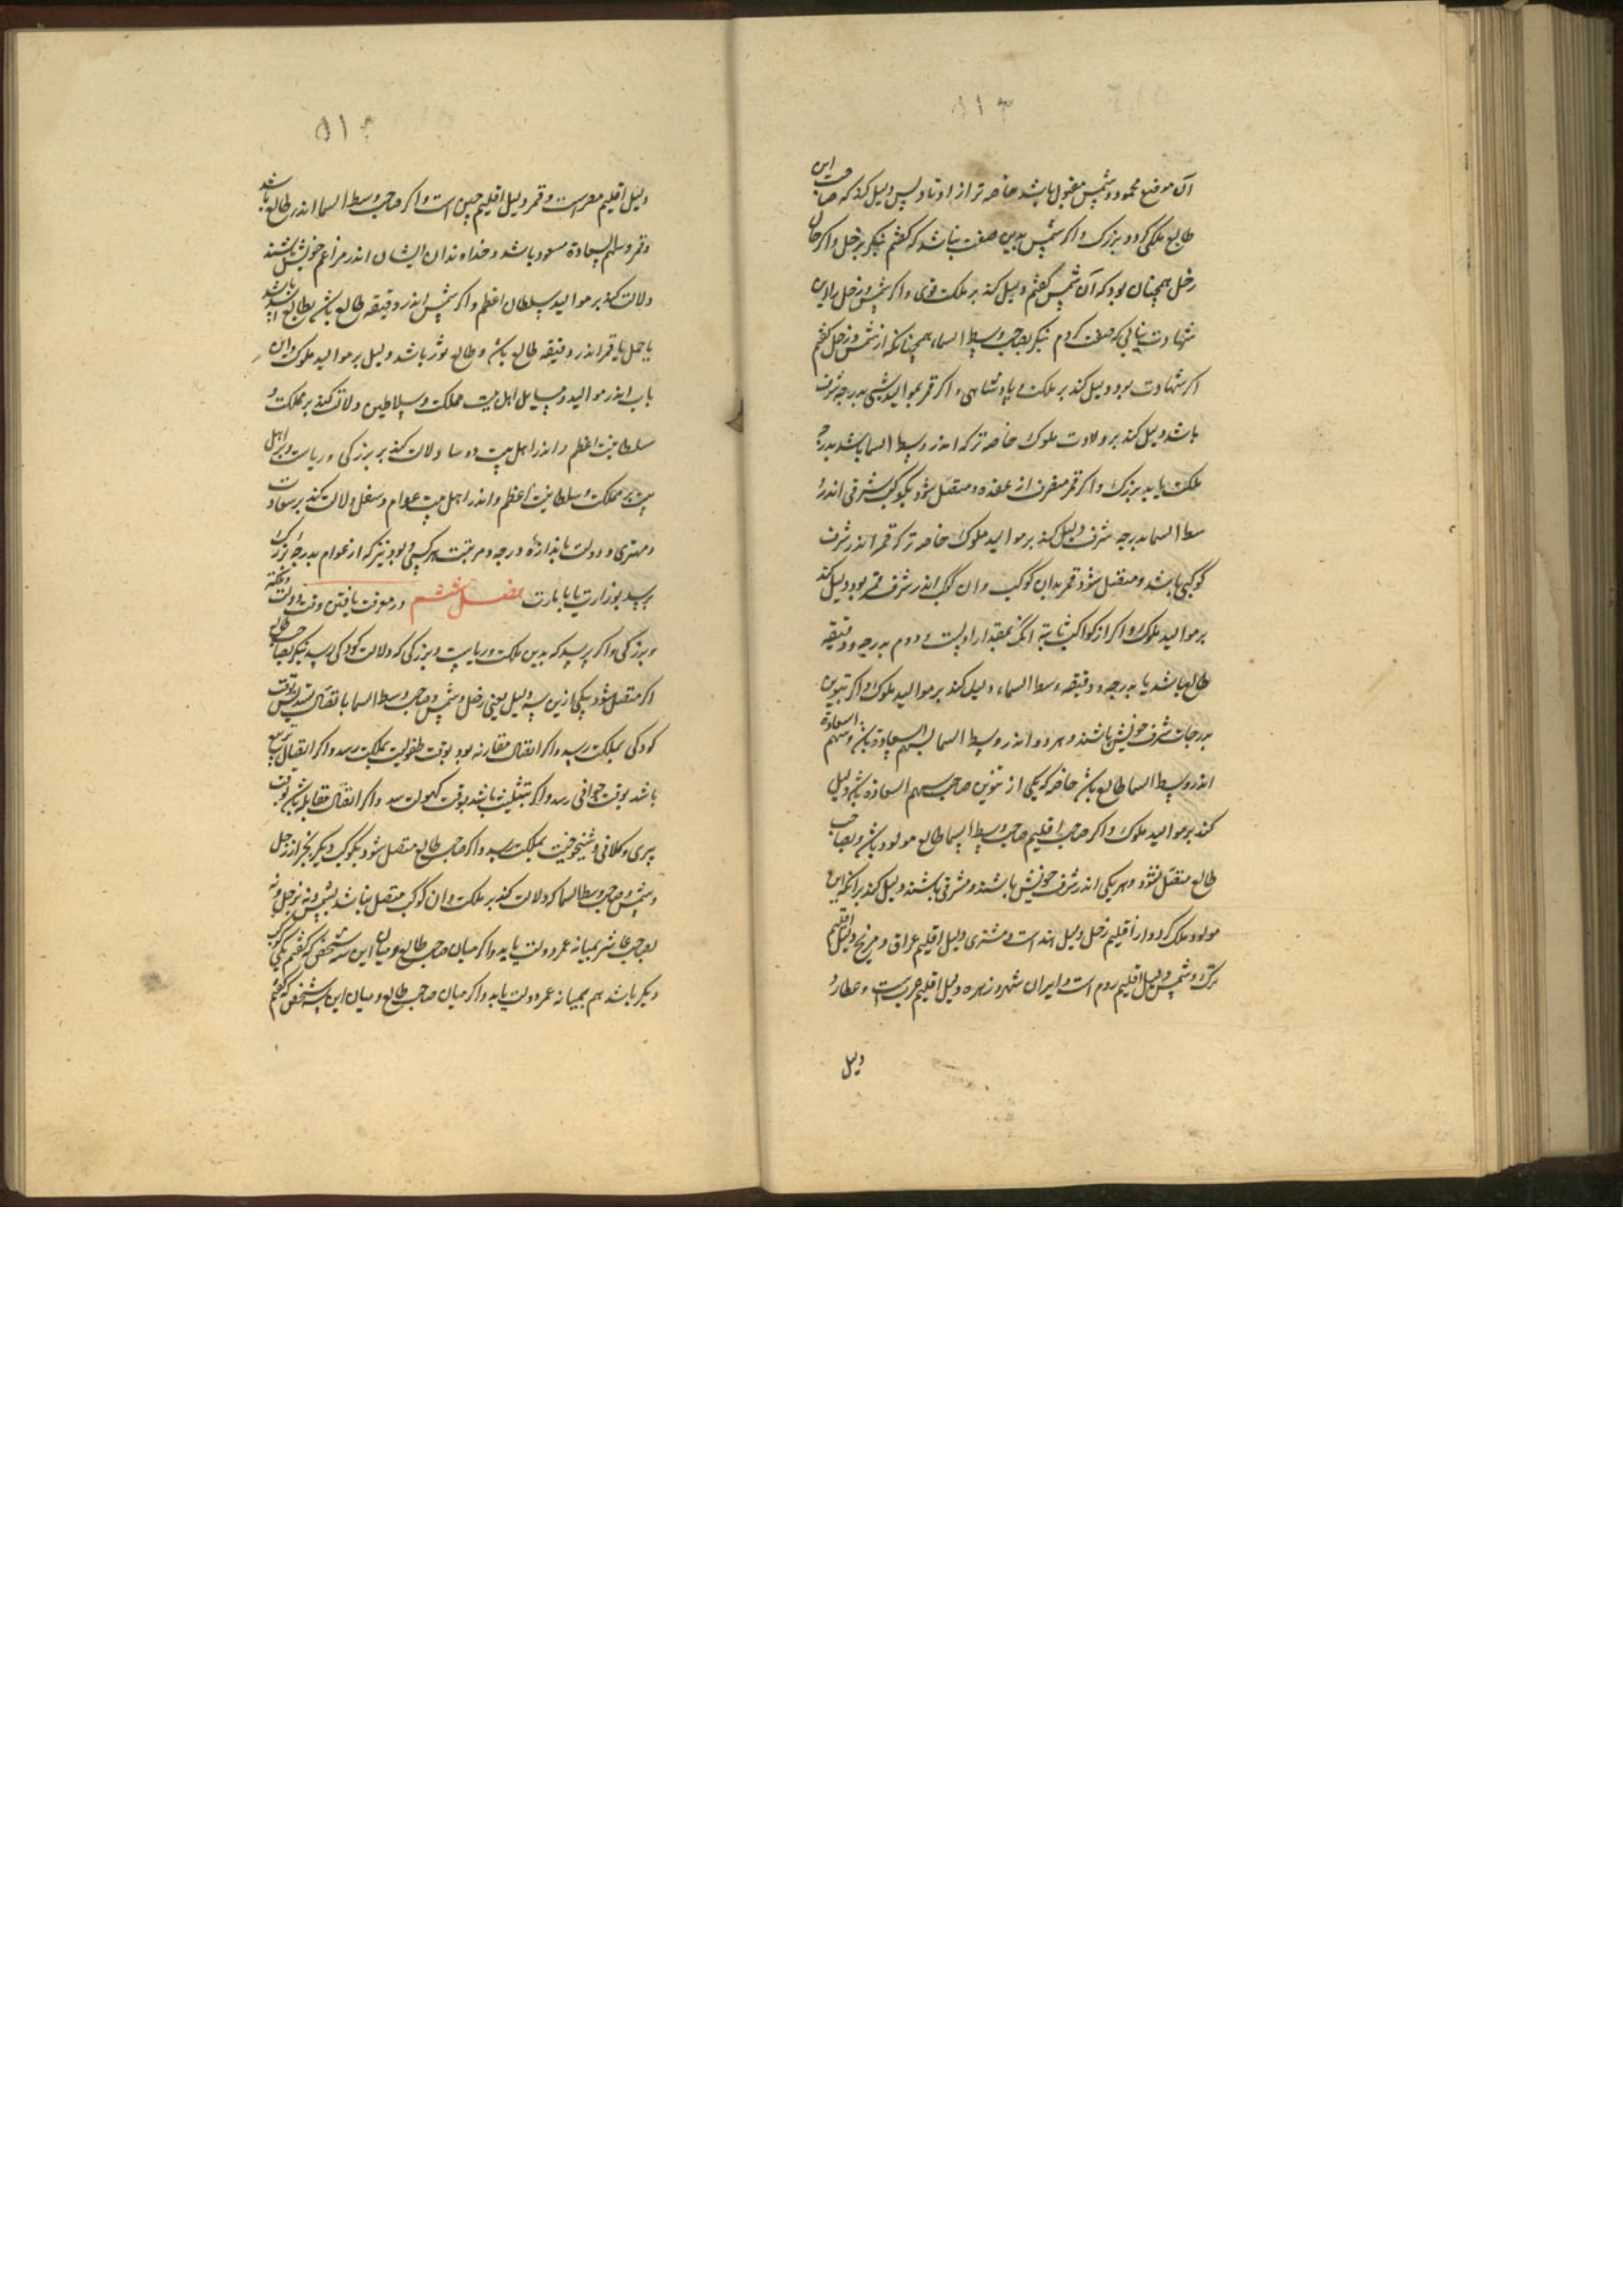 آن موضع محمود و شمس مقبول باشد خاصه تر از اوتاد پس دلیل کند که صاحب این
طالع ملکی کردد بزرک و اکر شمس بدین صفت نباشد که کفتم بنکر بزحل و اکر حال
زحل همچنان بود که آن شمس کفتم دلیل کند بر ملکت قوی و اکر شمس و زحل را این
شهادت نیابی که صفت کردم بنکر بصاحب وسط السماء همچنانکه از شمس و زحل کفتم
اکر شهادت بود دلیل کند بر ملکت و پادشاهی و اکر قمر بموالید شبی بدرجه شرف
باشد دلیل کند بر ولادت ملوک خاصه تر که اندر وسط السما باشد بدرجه
ملکت یابد بزرک و اکر قمر منصرف از عقده و متصل شود بکوکب شرقی اندر
وسط السما بدرجه شرف دلیل کند بر موالید ملوک خاصه تر که قمر اندر شرف
کوکبی باشد و متصل شود قمر بدان کوکب و ان کوکب اندر شرف قمر بود دلیل کند
بر موالید ملوک و اکر از کواکب ثابته انک بمقدار اولست و دوم بدرجه و دقیقه
طالع باشد یا بدرجه و دقیقه وسط السماء دلیل کند بر موالید ملوک و اکر نیرین
بدرجات شرف خویش باشند و هر دو اندر وسط السما بسهم السعادة باش و سهم السعادة
اندر وسط السما طالع باش خاصه که یکی از نیرین صاحب سهم السعادة باش دلیل
کند بر موالید ملوک و اکر صاحب اقلیم صاحب وسط السما طالع مولود باش و بصاحب
طالع متصل شود و هر یکی اندر شرف خویش باشند و مشرقی باشند دلیل کند برانکه این
مولود ملک کردد از اقلیم زحل دلیل هند است و مشتری دلیل اقلیم عراق و مریخ دلیل اقلیم
ترک و شمس دلیل اقلیم روم است و ایران شهر و زهره دلیل اقلیم عربست و عطارد
دلیل
دلیل اقلیم مصر است و قمر دلیل اقلیم چین است و اکر صاحب وسط السما اندر طالع باشد
و قمر و سهم السعادة مسعود باشد و خداوندان ایشان اندر مزاعم خویش باشند
دلالت کند بر موالید سلطان اعظم و اکر شمس اندر دقیقه طالع باش بطالع اسد باشد
یا حمل یا قمر اندر دقیقه طالع باش و طالع ثور باشد دلیل بر موالید ملوک و این
باب اندر موالید و مسایل اهل بیت مملکت و سلاطین دلالت کند بر مملکت و
سلطانیت اعظم و اندر اهل بیت دلالت کند بر بزرکی و ریاست و بر اهل
بیت بر مملکت و سلطانیت اعظم و اندر اهل بیت عوام و سفل دلالت کند بر سعادت
و مهتری و دولت باندازهٔ درجه و مرتبت هر کسی و بود نیز که از عوام بدرجه بزرک
برسد بوزارت یا بامارت فصل ششم در معرفت یافتن وقت دولت
و بزرکی و اکر پرسد که بدین ملکت و ریاست و بزرکی که دلالت کرد کی رسد بنکر بصاحب طالع
اکر متصل شود بیکی ازین سه دلیل یعنی زحل و شمس و صاحب وسط السما باتصال تسدیس بوقت
کودکی بملکت رسد و اکر اتصال مقارنه بود بوقت طفولیت بملکت رسد و اکر اتصال تربیع
باشد بوقت جوانی رسد و اکر تثلیث باشد بوقت کهولت رسد و اکر اتصال مقابله باش بوقت
پیری و کلانی و شیخوخیت بملکت رسد و اکر صاحب طالع متصل شود بکوکب دیکر بجز از زحل
و شمس و صاحب وسط السما که دلالت کند بر ملکت و ان کوکب متصل نباشد بشمس و نه بزحل و نه
بصاحب عاشر بمیانه عمر دولت یابد و اکر میان صاحب طالع و میان این سه شخص که کفتم یکی کوکب
دیکر باشد هم بمیانه عمر دولت یابد و اکر میان صاحب طالع و میان این سه شخص که کفتم